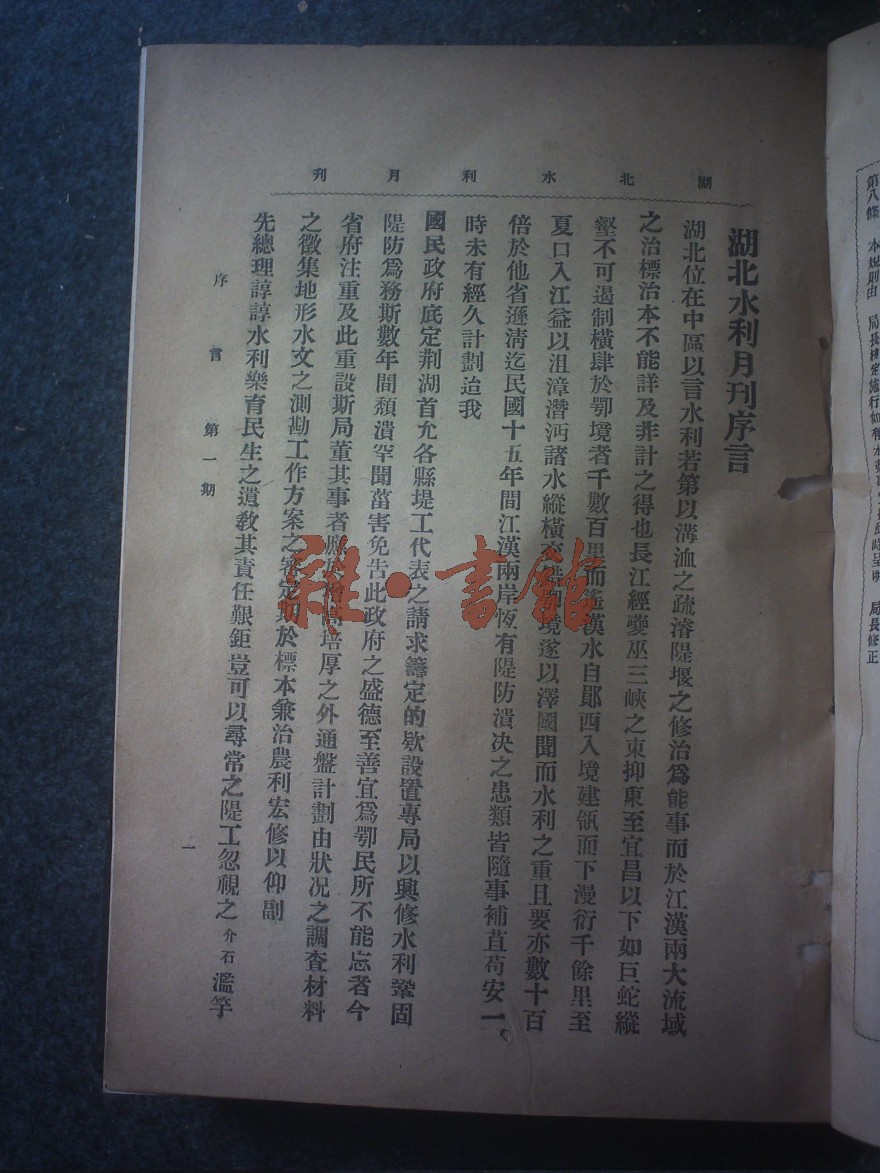 湖北水利月刊
湖北水利月刊序言
湖北位在中區以言水利若第以溝洫之疏濬隄堰之修治爲能事而於江漢兩大流域
之治標治本不能詳及非計之得也長江經夔巫三峽之束抑東至宜昌以下如巨蛇縱
壑不可遏制橫肆於鄂境者千數百里而遙漢水自鄖西入境建瓴而下漫衍千餘里至
夏口入江益以沮漳潛沔諸水縱橫交錯鄂境遂以澤國聞而水利之重且要亦數十百
倍於他省遜淸迄民國十五年間江漢兩岸恆有隄防潰决之患類皆隨事補苴苟安一
時未有經久計劃迨我
國民政府底定荆湖首允各縣堤工代表之請求籌定的欵設置專局以興修水利鞏固
隄防爲務斯數年間頽潰罕聞菑害免告此政府之盛德至善宜爲鄂民所不能忘者今
省府注重及此重設斯局董其事者應於培厚之外通盤計劃由狀况之調查材料
之徵集地形水文之測勘工作方案之審定期於標本兼治農利宏修以仰副
先總理諄諄水利樂育民生之遺敎其責任艱鉅豈可以尋常之隄工忽視之介石濫竽
序言 第一期
一
雜·書館
第八條 本規則由 局長核定施行如有 時呈明 局長修正